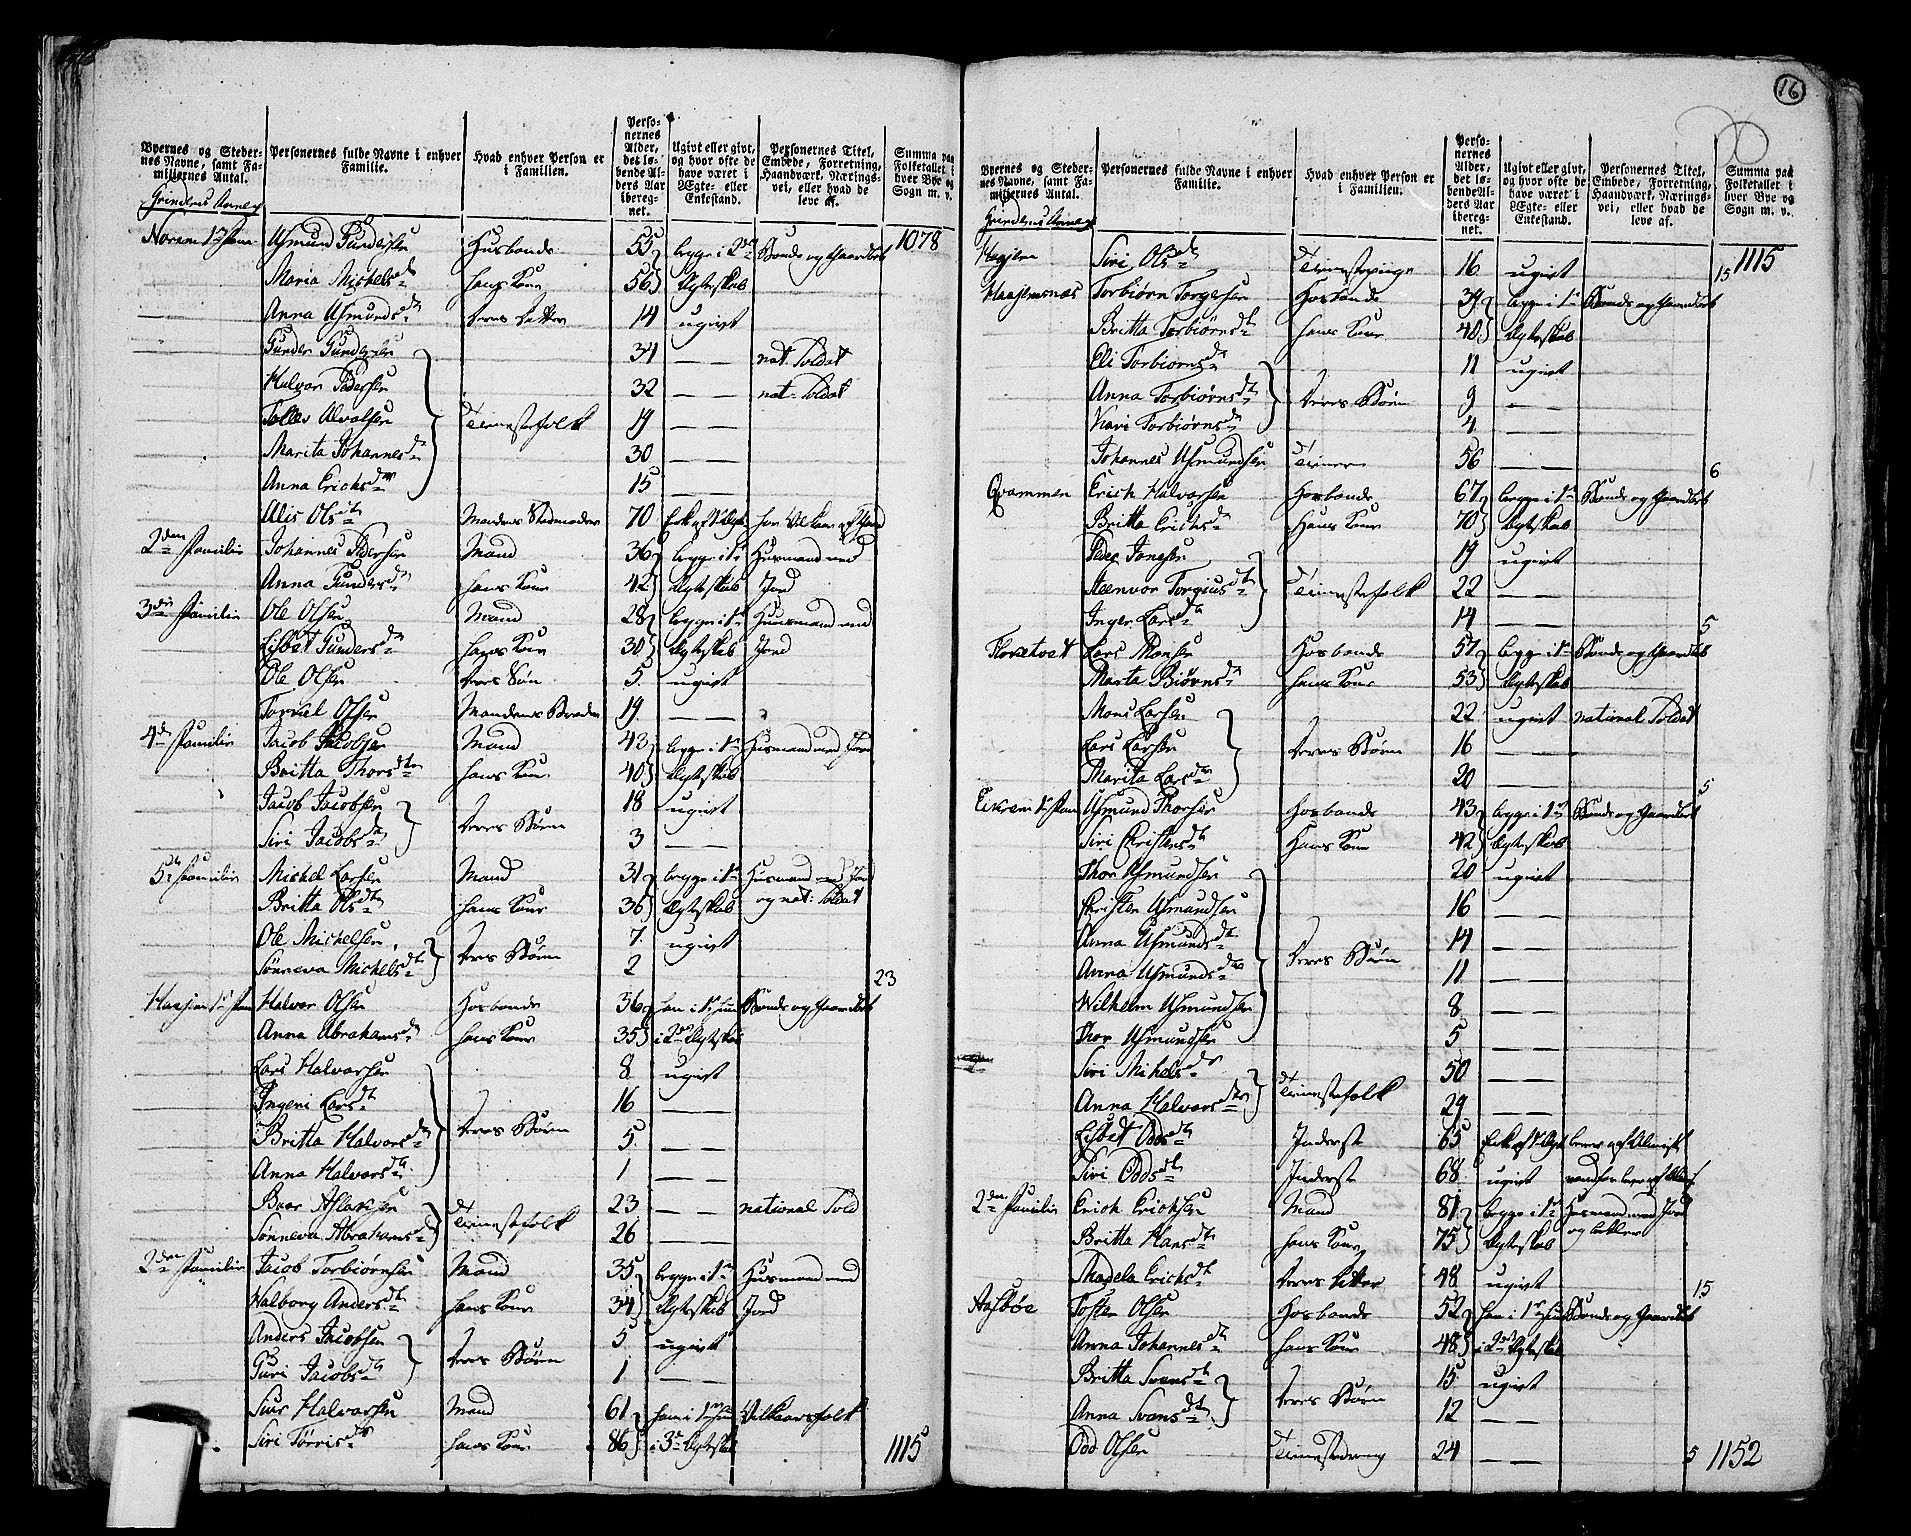 16
Byernes og Stedernes Navne, samt Familiernes Antal.
Personernes fulde Navne i enhver Familie.
Hvad enhver Person er i Familien.
Personernes Alder, det løbende Alders Aar iberegnet.
Ugivt eller givt, og hvor ofte de have været i Ægte- eller Enkestand.
Personernes Titel, Embede, Forretning, Haandværk, Næringsvei, eller hvad de leve af.
Summa paa Folketallet i hver Bye og Sogn m. v.
Grindens Annex
Asmund Gundersen Husbonde 55 begge i 2det Bonde og Gaardb 1078
Maria Michelsd. hans Kone 56 Ægteskab
Anna Asmundsd. deres Datter 14 ugivt
Gunder Gundersen 34 — — nat. Soldat
Halvor Pedersen 32 — — nat. Soldat
Tollev Alvalsen Tienestefolk 19 — —
Marita Johannesd. 30 — —
Anna Erichsd. 15 — —
Alis Olsd. Mandens Stedmoder 70
2den Familie Johannes Pedersen Mand 36 begge i 1ste Husmand med
Anna Gundersd. hans Kone 42 Ægteskab Jord
3die Familie Ole Olsen Mand 28 begge i 1ste Huusmand med
Lisbet Gundersd. hans Kone 30 Ægteskab Jord
Ole Olsen deres Søn 5 ugivt
Torkel Olsen Mandens Broder 19 — —
4de Familie Jacob Jacobsen Mand 43 begge i 1ste Husmand med Jord
Britta Thorsd. hans Kone 40 Ægteskab
Jacob Jacobsen deres Børn 18 ugivt
Siri Jacobsd. 3 — —
5te Familie Michel Larsen Mand 31 begge i 1ste Husmand med Jord
Britta Olsd. hans Kone 36 Ægteskab og nat: Soldat
Ole Michelsen deres Børn 7 ugivt
Sønneva Michelsd. 2 — — 23
Halvor Olsen Hosbonde 36 Bonde og Gaardb
Anna Abrahamsd. hans Kone 35 i 2det Ægteskab
Lars Halvorsen 8 ugivt
Ingeri Larsd. 16 — —
Britta Halvorsd. deres Børn 5 — —
Anna Halvorsd. 1 — —
Baar Aslaksen Tienestefolk 23 — — national Sold
Sønneva Abrahamsd. 26 — —
2den Familie Jacob Torbiørnsen Mand 35 begge i 1ste Husmand med
Walborg Andersd. hans Kone 34 Ægteskab Jord
Anders Jacobsen deres Børn 5 ugivt
Guri Jacobsd. 1 — —
Siur Halvorsen Mand 61 Vilkaarsfolk
Siri Torrisd. hans Kone 86 i 3de Ægteskab 1115
Byernes og Stedernes Navne, samt Familiernes Antal.
Personernes fulde Navne i enhver Familie.
Hvad enhver Person er i Familien.
Personernes Alder, det løbende Alders Aar iberegnet.
Ugivt eller givt, og hvor ofte de have været i Ægte- eller Enkestand.
Personernes Titel, Embede, Forretning, Haandværk, Næringsvei, eller hvad de leve af.
Summa paa Folketallet i hver Bye og Sogn m. v.
Grindens Annex
Siri Olsd. Tienestepige 16 ugivt 15 1115
Torbiørn Torgersen Hosbonde 39 begge i 1ste Bonde og Gaardb
Britta Torbiørnsd. hans Kone 40 Ægteskab
Eli Torbiørnsd. 11 ugivt
Anna Torbiørnsd. deres Børn 9 — —
Kari Torbiørnsd. 4 — —
Johannes Asmundsen Tienere 56 — — 6
Qvammen Erich Halvorsen Hosbonde 67 begge i 1ste Bonde og Gaardb
Britta Erichsd. Hans Kone 70 Ægteskab
Peder Jonesen 19 ugivt
Steenvor Torgiusd. Tienestefolk 22 — —
Inger Larsd. 14 — — 5
Lars Monsen Hosbonde 57 begge i 1ste Bonde og Gaardb
Marta Biørnsd. hans Kone 53 Ægteskab
Mons Larsen 22 ugivt national Soldat
Lars Larsen deres Børn 16 — —
Marita Larsd. 20 — — 5
Asmund Thorsen Hosbonde 43 begge i 1ste Bonde og Gaardb
Siri Christensd. Hans Kone 42 Ægteskab
Thor Asmundsen 20 ugivt
Christen Asmundsen 16 — —
Anna Asmundsd. 14 — —
Anna Asmundsd. deres Børn 11 — —
Wilhelm Asmundsen 8 — —
Thor Asmundsen 5 — —
Siri Michelsd. 50 — —
Anna Halvorsd. Tienestefolk 29 — —
Lisbet Oddsd. Inderst 65
Siri Oddsd. Inderst 68 ugivt
2den Familie Erich Erichsen Mand 81 begge i 1ste Husmand med Jord
Britta Hansd. hans Kone 75 Ægteskab
Madela Erichsd. deres Datter 48 ugivt 15
Aasbøe Tosten Olsen Hosbonde 52 Bonde og Gaardb
Anna Johannesd. hans Kone 48 i 2det Ægteskab
Britta Svensd. deres Børn 15 ugivt
Anna Svensd. 12 — —
Odd Olsen Tienestedreng 24 — — 5 1152